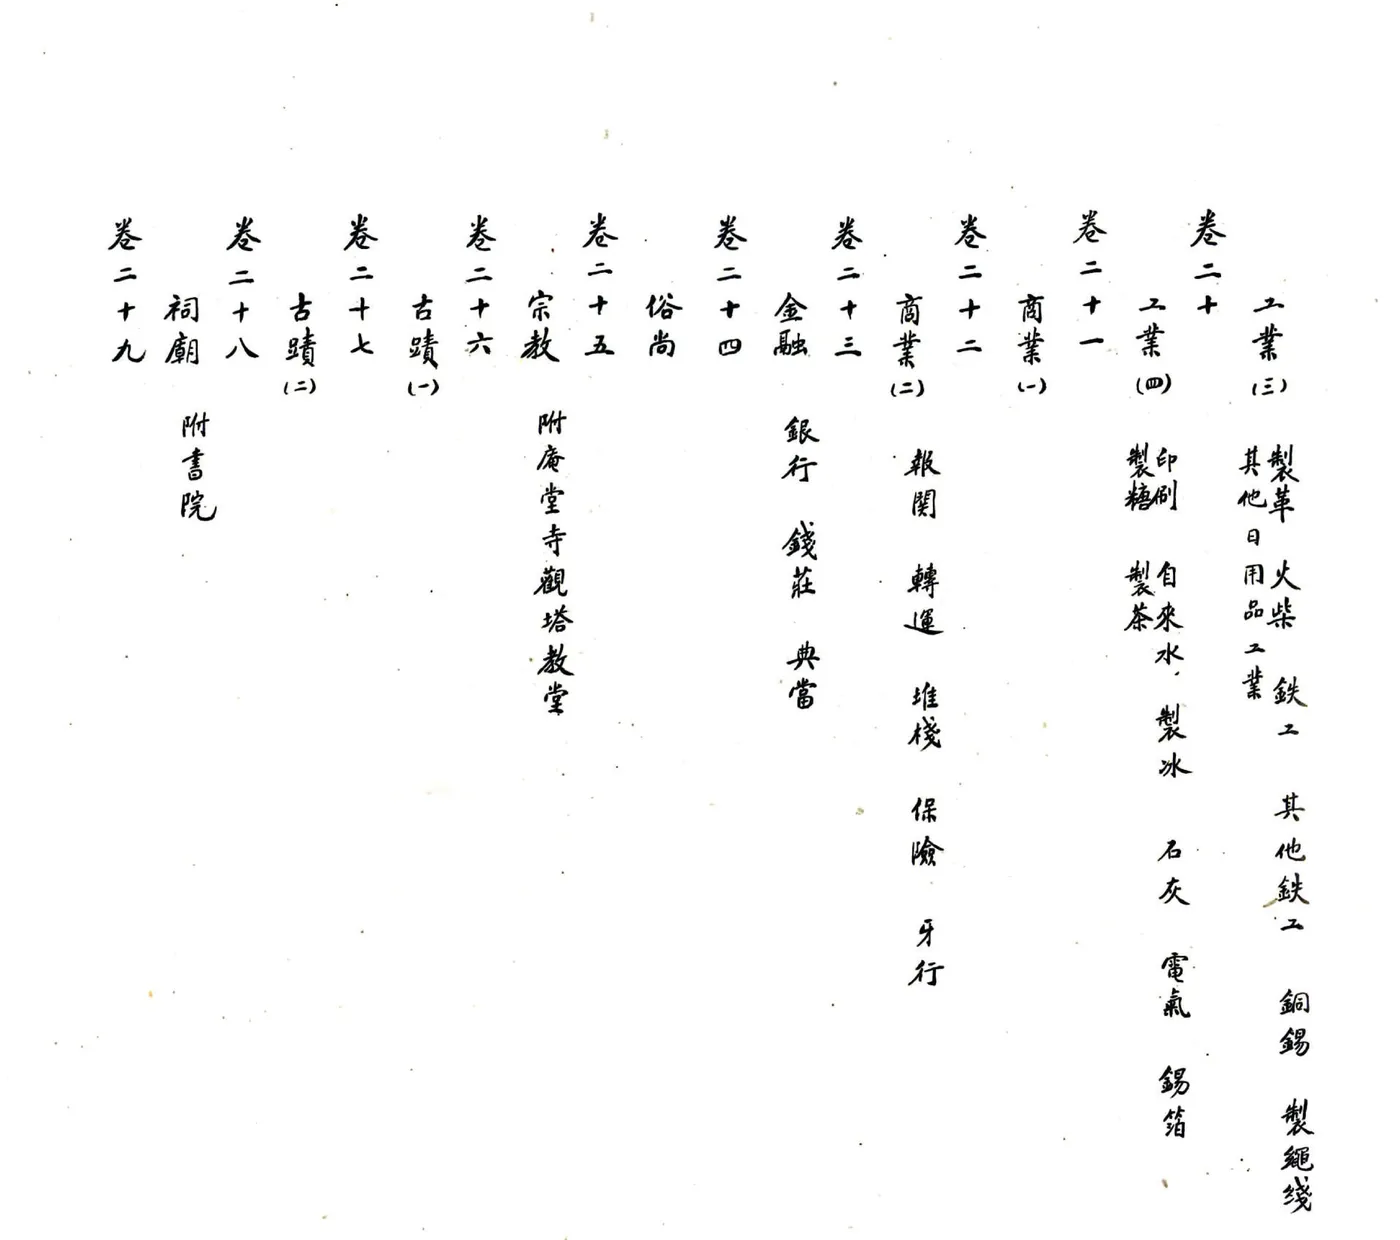 工業(三) 製革 火柴 鉄工 其他鉄工 銅錫 製繩綫
其他日用品工業
卷二十
工業(四) 印刷 自來水、製冰 石灰 電氣 錫箔
製糖 製茶
卷二十一
商業(一)
卷二十二
商業(二) 報関 轉運 堆棧 保險 牙行
卷二十三
金融 銀行 錢莊 典當
卷二十四
俗尚
卷二十五
宗教 附庵堂寺觀塔教堂
卷二十六
古蹟(一)
卷二十七
古蹟(二)
卷二十八
祠廟 附書院
卷二十九